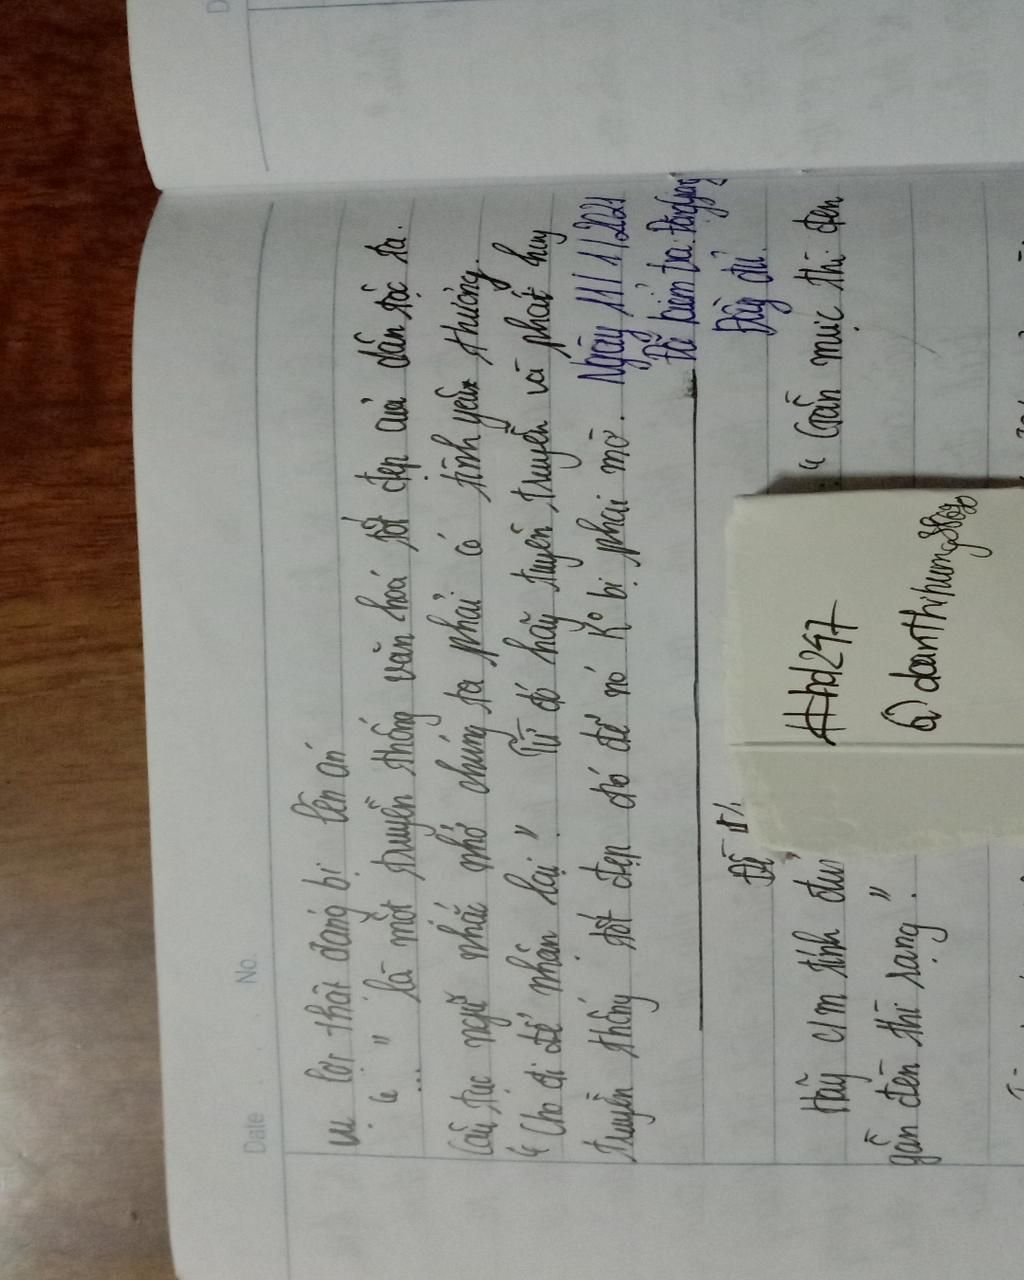 Date No.
vụ lợi thật đáng bị lên án
"..." là một truyền thống văn hoá tốt đẹp của dân tộc ta.
Câu tục ngữ nhắc nhở chúng ta phải có tình yêu thương.
"Cho đi để nhận lại". Từ đó hãy truyền truyền và phát huy
truyền thống tốt đẹp đó để nó ko bị phai mờ.
Ngày 11/1/2021
Đã kiểm tra.
Đầy đủ.
Đề
Hãy c/m tính "Gần mực thì đen
gần đèn thì sạng".
#hd247